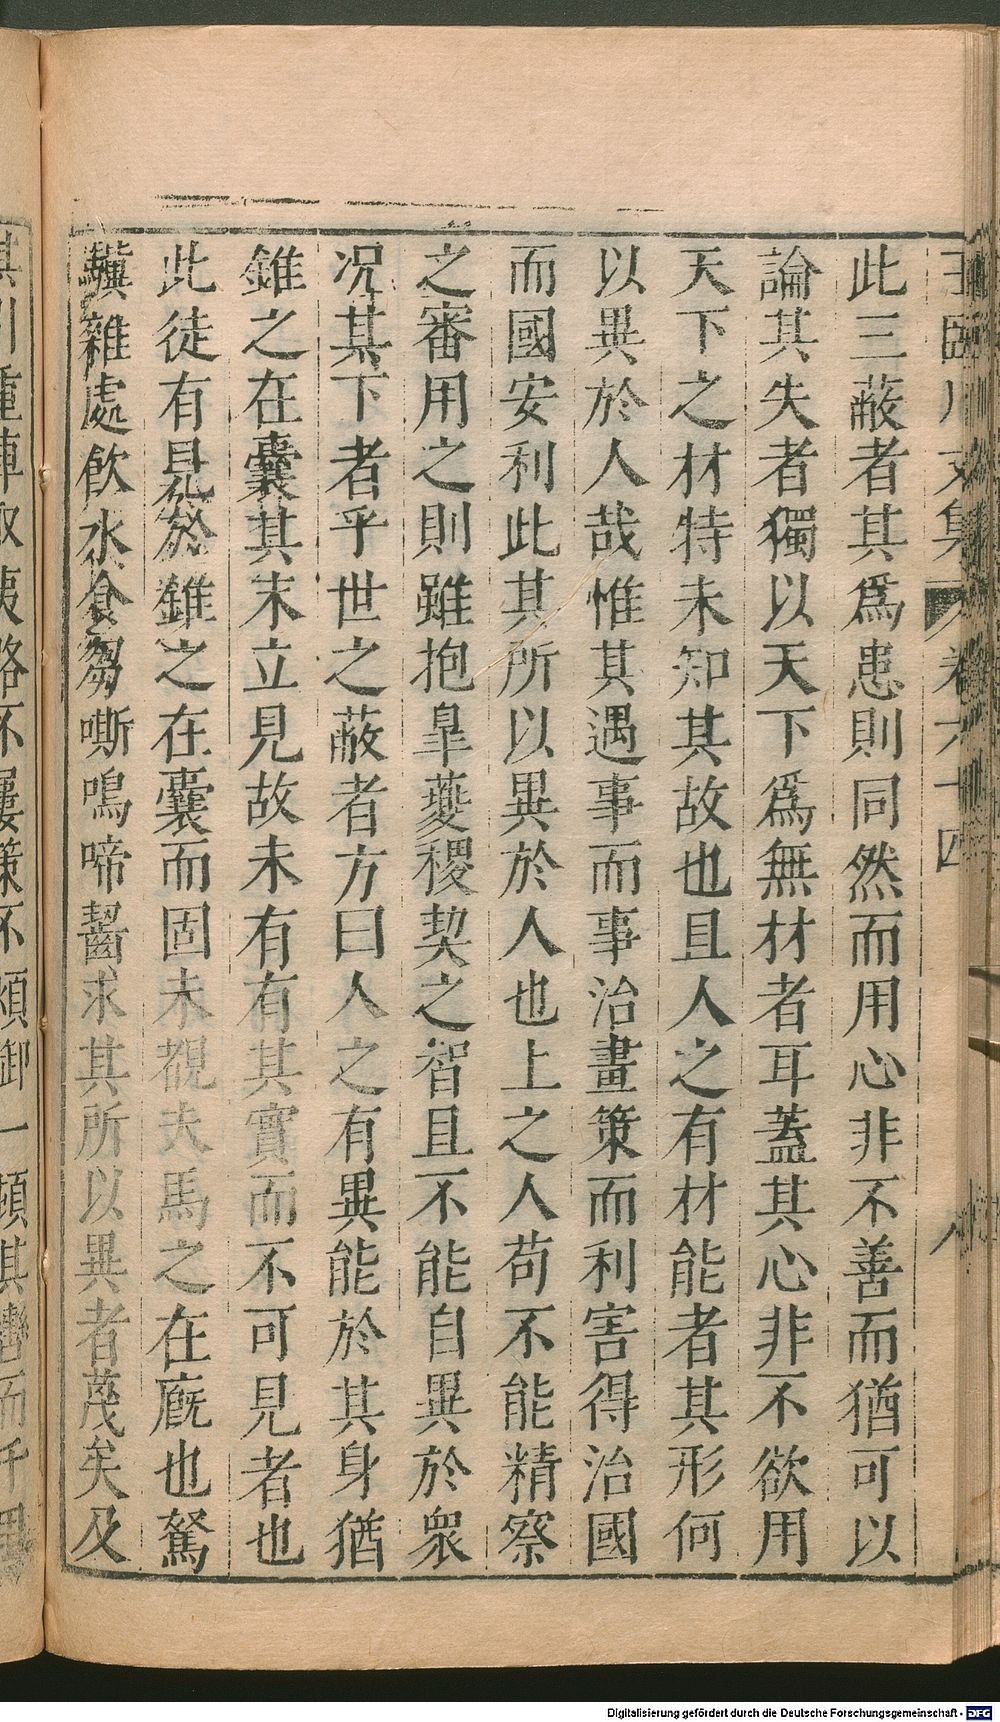 王臨川文集 卷六十四 八
此三蔽者其爲患則同然而用心非不善而猶可以
論其失者獨以天下爲無材者耳蓋其心非不欲用
天下之材特未知其故也且人之有材能者其形何
以異於人哉惟其遇事而事治畫策而利害得治國
而國安利此其所以異於人也上之人苟不能精察
之審用之則雖抱皐夔稷契之智且不能自異於衆
况其下者乎世之蔽者方曰人之有異能於其身猶
錐之在囊其末立見故未有有其實而不可見者也
此徒有見於錐之在囊而固未覩夫馬之在廐也駑
驥雜處飮水食芻嘶鳴啼齧求其所以異者蔑矣及
其引重車取夷路不屢策不煩御一頓其轡而千里
Digitalisierung gefördert durch die Deutsche Forschungsgemeinschaft - DFG